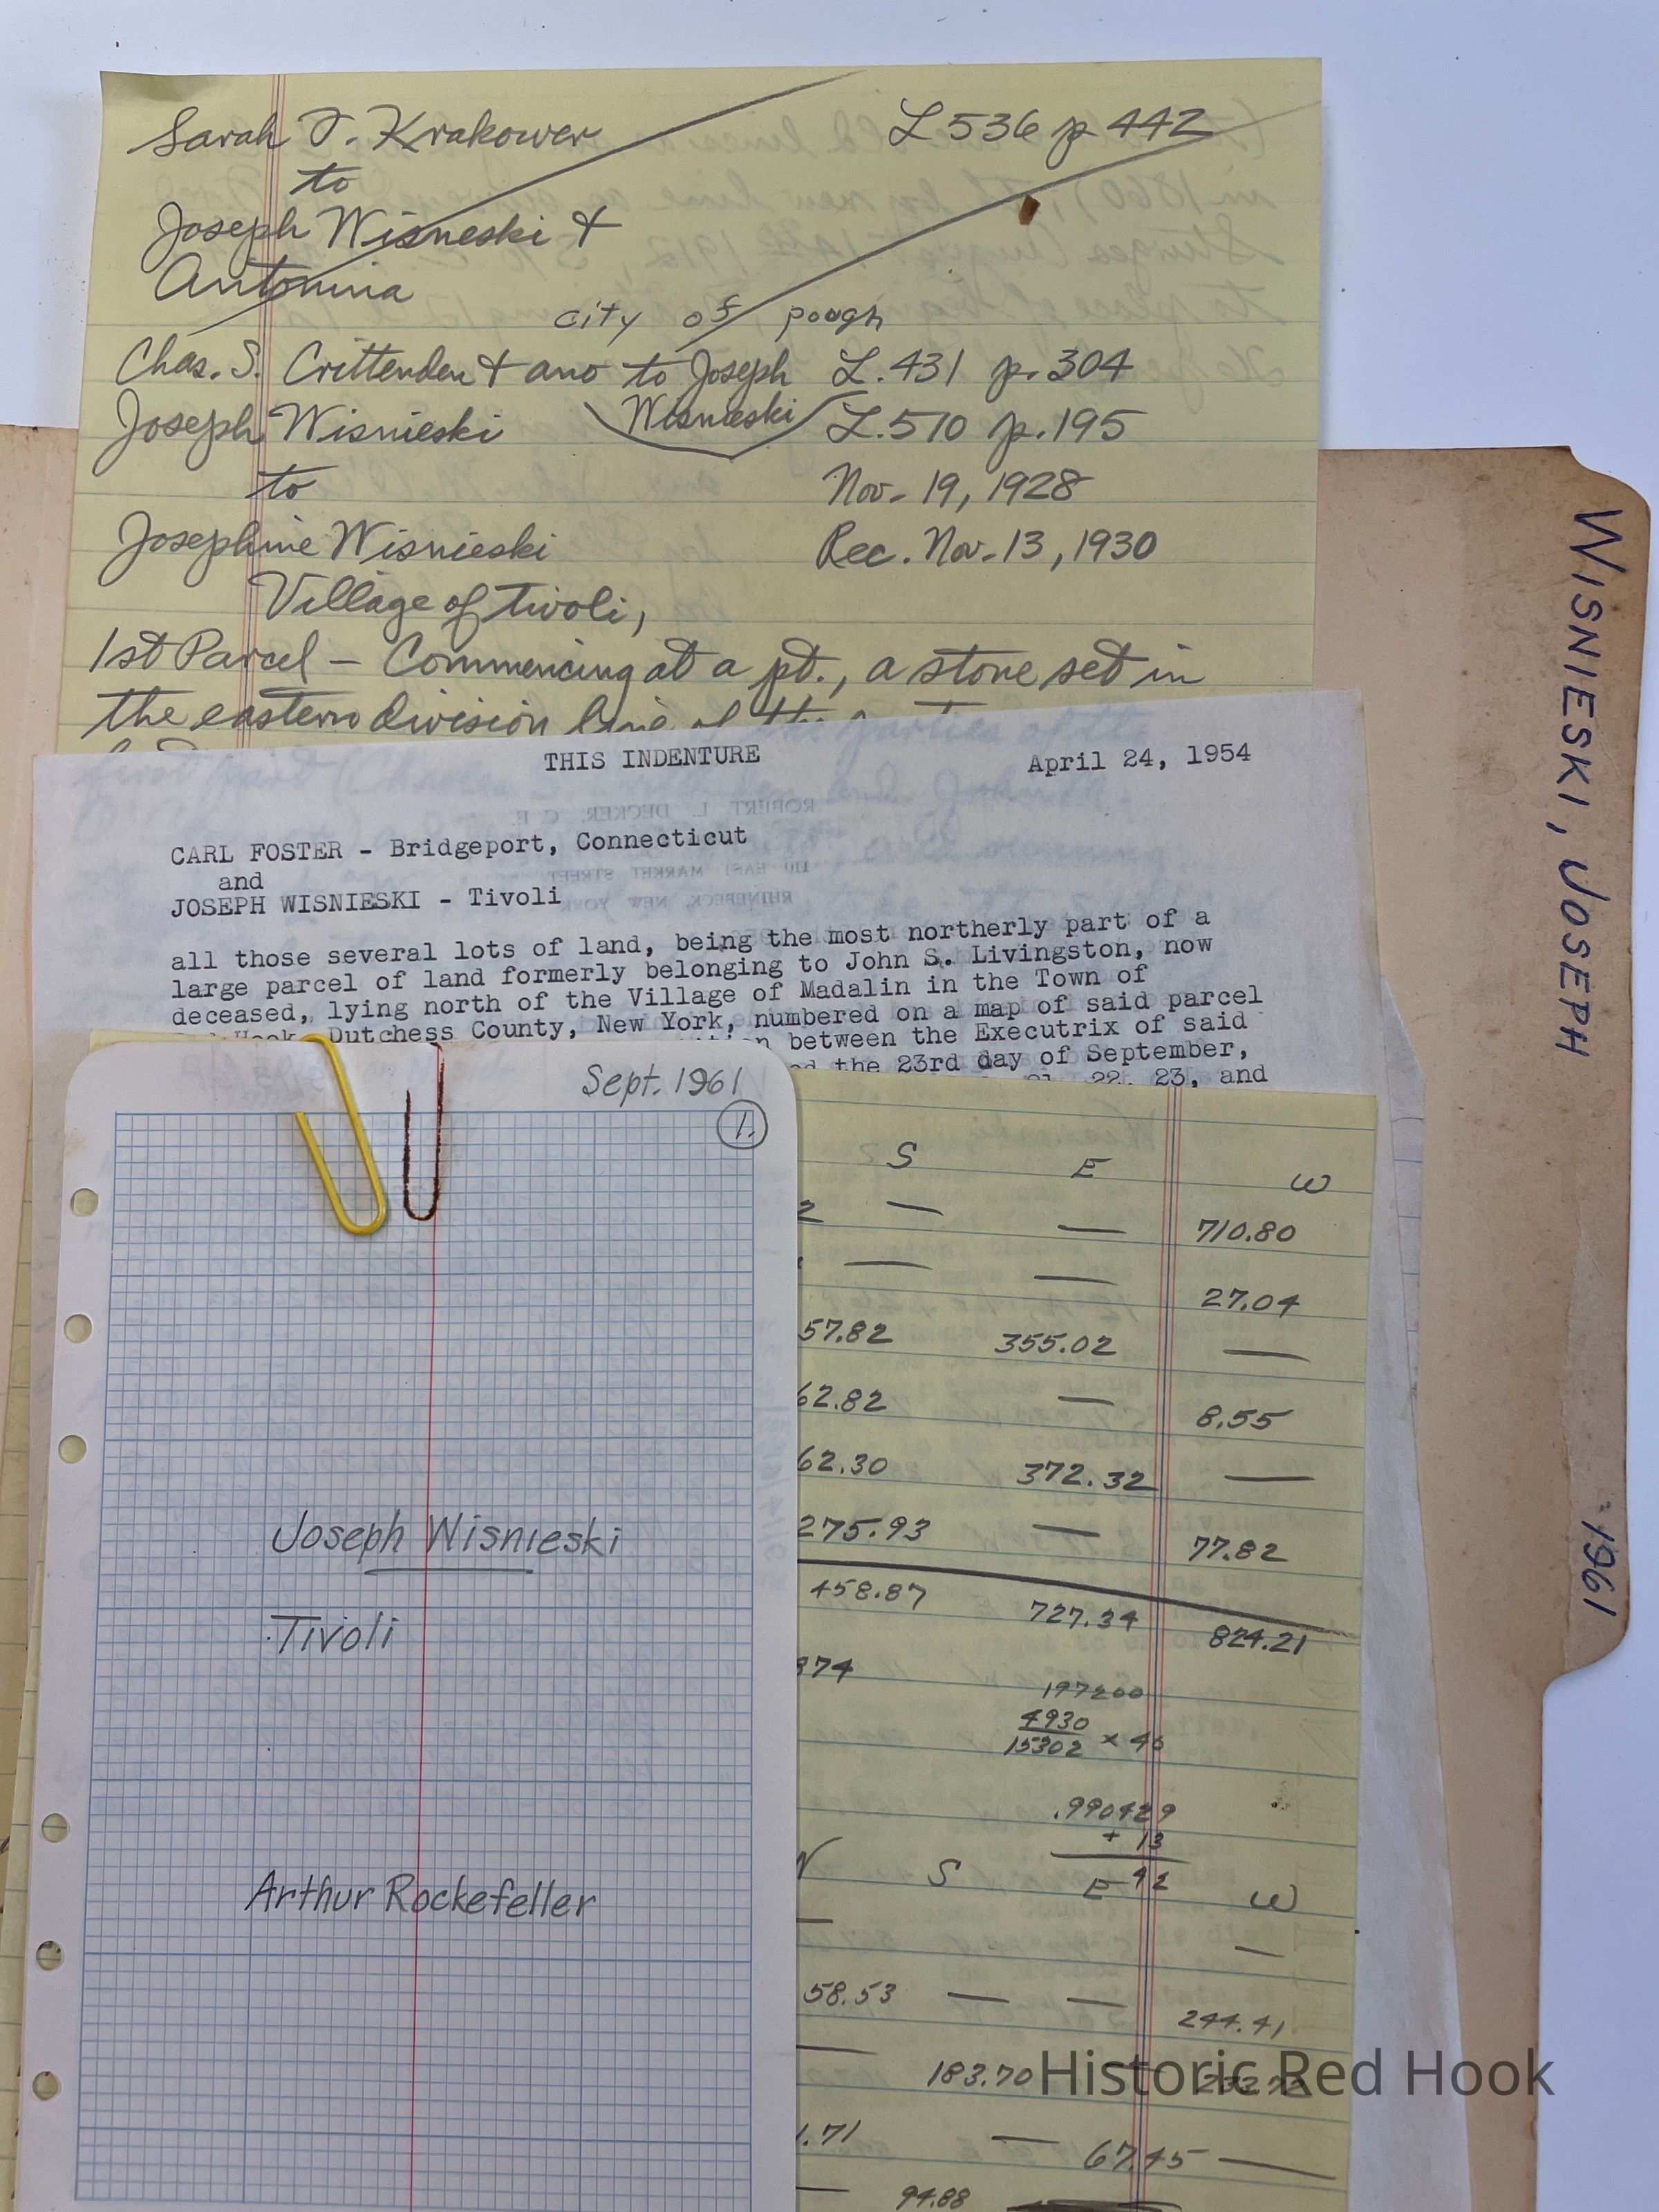 Sarah T. Krakower L 536 p 442
to
Joseph Wisneski &
Antonina
city of pough
Chas. S. Crittenden & ano to Joseph L. 431 p. 304
Wisnieski
Joseph Wisnieski L. 570 p. 195
to Nov. 19, 1928
Josephine Wisnieski Rec. Nov. 13, 1930
Village of Tivoli,
1st Parcel - Commencing at a pt., a stone set in
the eastern division line of the parties of the
THIS INDENTURE April 24, 1954
ROBERT L. DECKER, C. E.
110 EAST MARKET STREET
RHINEBECK, NEW YORK
CARL FOSTER - Bridgeport, Connecticut
and
JOSEPH WISNIESKI - Tivoli
all those several lots of land, being the most northerly part of a
large parcel of land formerly belonging to John S. Livingston, now
deceased, lying north of the Village of Madalin in the Town of
Hook, Dutchess County, New York, numbered on a map of said parcel
between the Executrix of said
the 23rd day of September,
22, 23, and
Sept. 1961
1.
Joseph Wisnieski
Tivoli
Arthur Rockefeller
S E W
2 — — 710.80
— — 27.04
57.82 355.02 —
62.82 — 8.55
62.30 372.32 —
275.93 — 77.82
458.87 727.34 824.21
874
197200
4930
15302 × 40
.990429
+ 13
42
N S E W
—
58.53 — — 244.41
183.70
1.71 — 67.45 —
— 94.88
WISNIESKI, JOSEPH 1961
Historic Red Hook